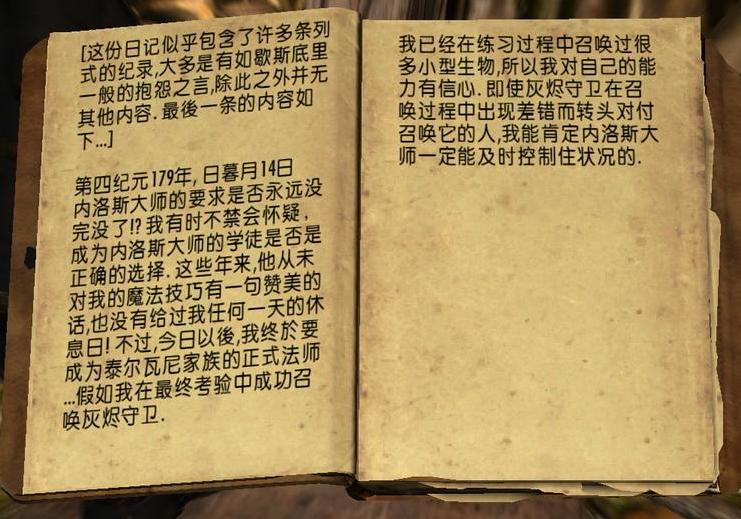 [这份日记似乎包含了许多条列
式的纪录,大多是有如歇斯底里
一般的抱怨之言,除此之外并无
其他内容. 最後一条的内容如
下...]
第四纪元179年, 日暮月14日
内洛斯大师的要求是否永远没
完没了!? 我有时不禁会怀疑,
成为内洛斯大师的学徒是否是
正确的选择. 这些年来,他从未
对我的魔法技巧有一句赞美的
话,也没有给过我任何一天的休
息日! 不过,今日以後,我终於要
成为泰尔瓦尼家族的正式法师
...假如我在最终考验中成功召
唤灰烬守卫.
我已经在练习过程中召唤过很
多小型生物,所以我对自己的能
力有信心. 即使灰烬守卫在召
唤过程中出现差错而转头对付
召唤它的人,我能肯定内洛斯大
师一定能及时控制住状况的.